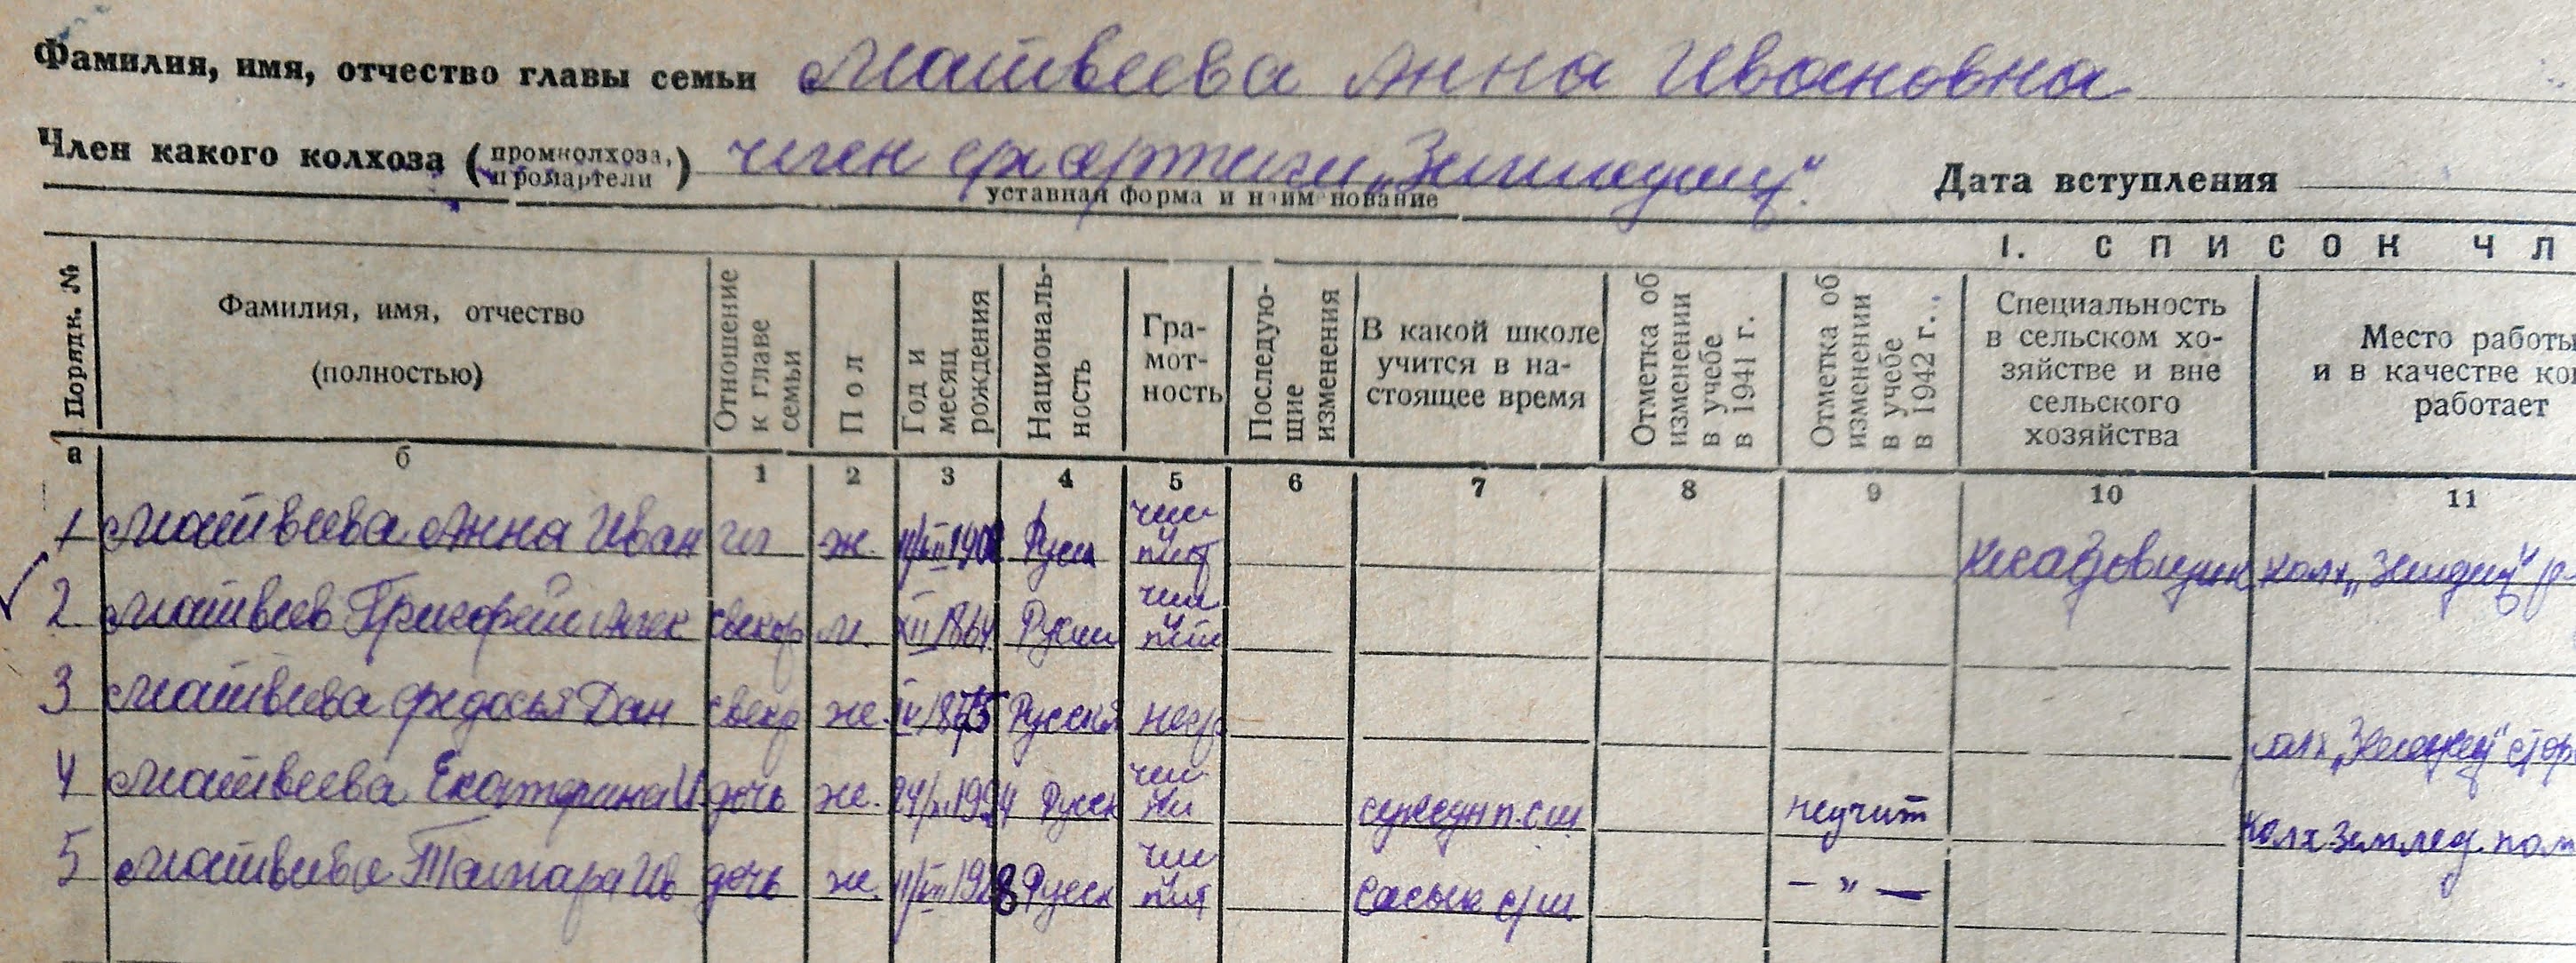 Фамилия, имя, отчество главы семьи Матвеева Анна Ивановна
Член какого колхоза (промколхоза, промартели) член с/х артели „Земледелец"
уставная форма и наименование
Дата вступления
I. СПИСОК ЧЛ
Порядк. №
Фамилия, имя, отчество (полностью)
Отношение к главе семьи
Пол
Год и месяц рождения
Националь-ность
Гра-мот-ность
Последую-щие изменения
В какой школе учится в на-стоящее время
Отметка об изменении в учебе в 1941 г.
Отметка об изменении в учебе в 1942 г..
Специальность в сельском хо-зяйстве и вне сельского хозяйства
Место работы и в качестве ко работает
а б 1 2 3 4 5 6 7 8 9 10 11
1 Матвеева Анна Иван гл ж. Русск чит пист кладовщик колх
2 Матвеев Прокофей Алек свекор м. XII 1864 Русский чит пист
3 Матвеева Федосья Дан свекр ж. IV 1875 Русский негр
4 Матвеева Екатерина И дочь ж. 1924 Русск чит неучит колх Землед
5 Матвеева Тамара Ив дочь ж. 1928 Русск чит пист Сасык с/ш — „ —